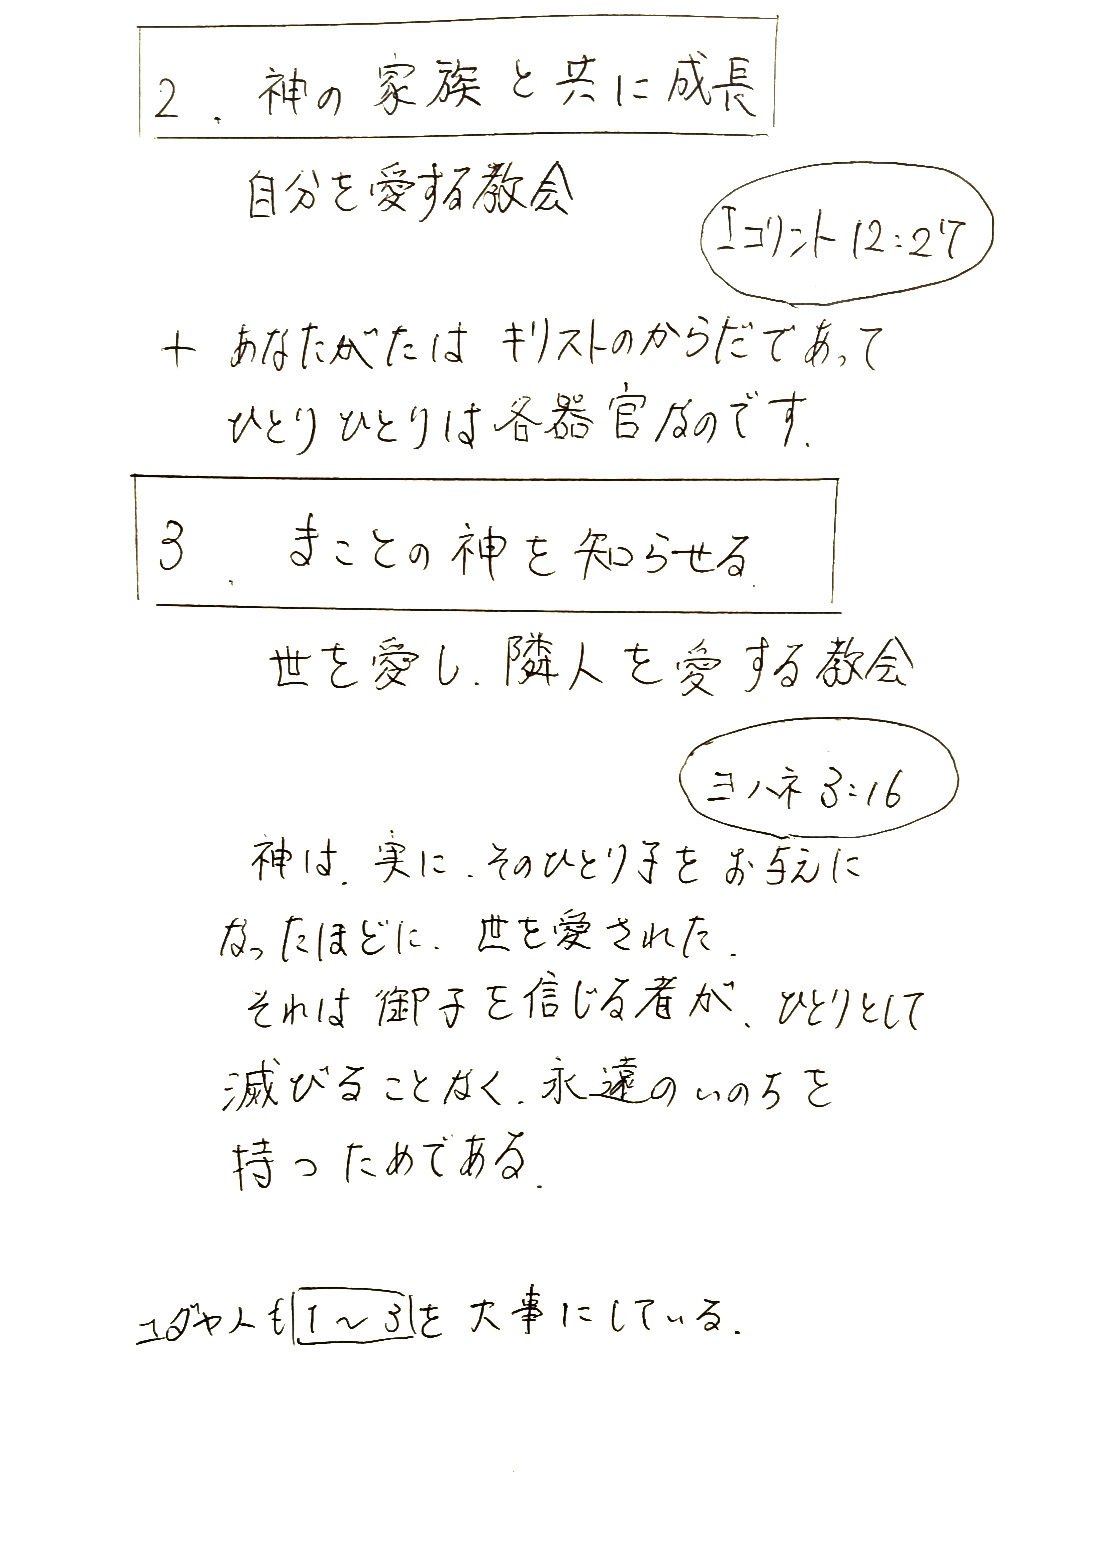 2. 神の家族と共に成長
自分を愛する教会
Iコリント12:27
+ あなたがたはキリストのからだであって
ひとりひとりは各器官なのです.
3. まことの神を知らせる
世を愛し.隣人を愛する教会
ヨハネ3:16
神は.実に.そのひとり子をお与えに
なったほどに.世を愛された.
それは御子を信じる者が.ひとりとして
滅びることなく.永遠のいのちを
持つためである.
ユダヤ人も1~3を大事にしている.